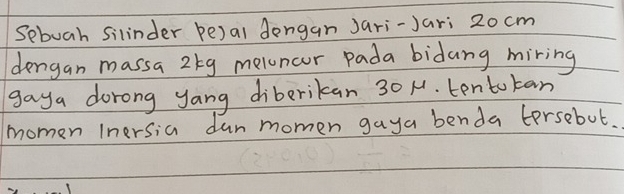 Sebuah silinder pejal dengan jari-jari 20 cm
dengan massa 2kg meluncur pada bidang miring
gaya dorong yang diberikan 30 N. tentukan
momen Inersia dan momen gaya benda tersebut..